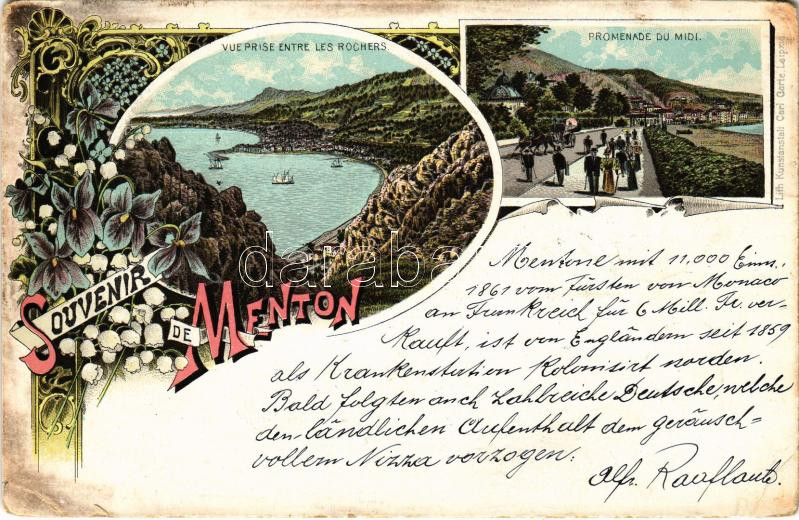 VUE PRISE ENTRE LES ROCHERS.
PROMENADE DU MIDI.
Lith. Kunstanstalt Carl Garte, Leipzig
SOUVENIR
DE MENTON
darabanth
Mentone mit 11,000 Einw.
1861 vom Fürsten von Monaco
an Frankreich für 6 Mill. Fr. ver-
kauft, ist von Engländern seit 1859
als Krankenstation kolonisirt worden.
Bald folgten auch zahlreiche Deutsche, welche
den ländlichen Aufenthalt dem geräusch-
vollem Nizza vorzogen.
Alfr.